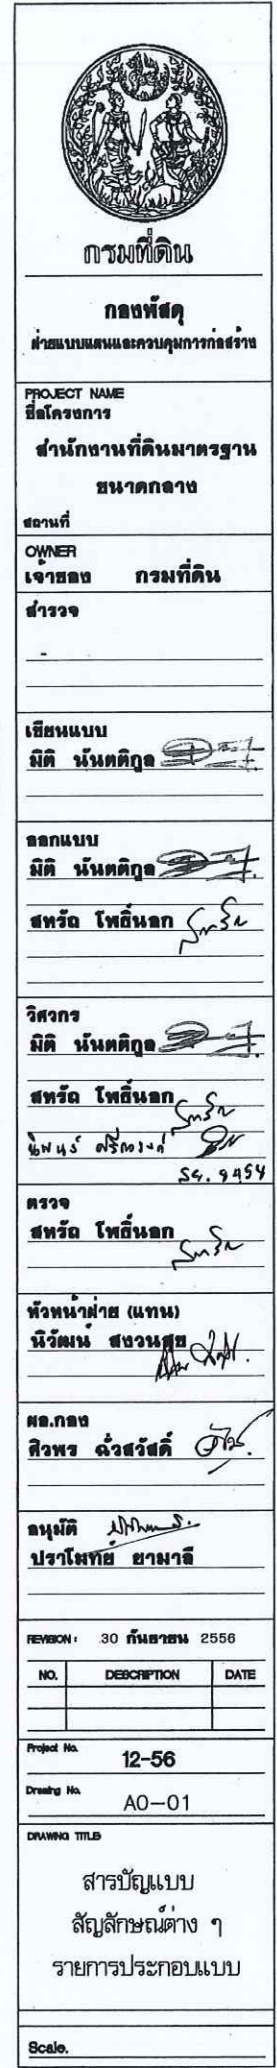 กรมที่ดิน
กองพัสดุ
ฝ่ายแบบแผนและควบคุมการก่อสร้าง
PROJECT NAME
ชื่อโครงการ
สำนักงานที่ดินมาตรฐาน
ขนาดกลาง
สถานที่
OWNER
เจ้าของ กรมที่ดิน
สำรวจ
-
เขียนแบบ
มิติ นันตติกูล
ออกแบบ
มิติ นันตติกูล
สหรัถ โพธิ์นอก
วิศวกร
มิติ นันตติกูล
สหรัถ โพธิ์นอก
ตรวจ
สหรัถ โพธิ์นอก
หัวหน้าฝ่าย (แทน)
นิวัฒน์ สงวนสุข
ผอ.กอง
ศิวพร ฉั่วสวัสดิ์
อนุมัติ
ปราโมทย์ ยามาลี
REVISION : 30 กันยายน 2556
NO. DESCRIPTION DATE
Project No.
12-56
Drawing No.
A0-01
DRAWING TITLE
สารบัญแบบ
สัญลักษณ์ต่าง ๆ
รายการประกอบแบบ
Scale.